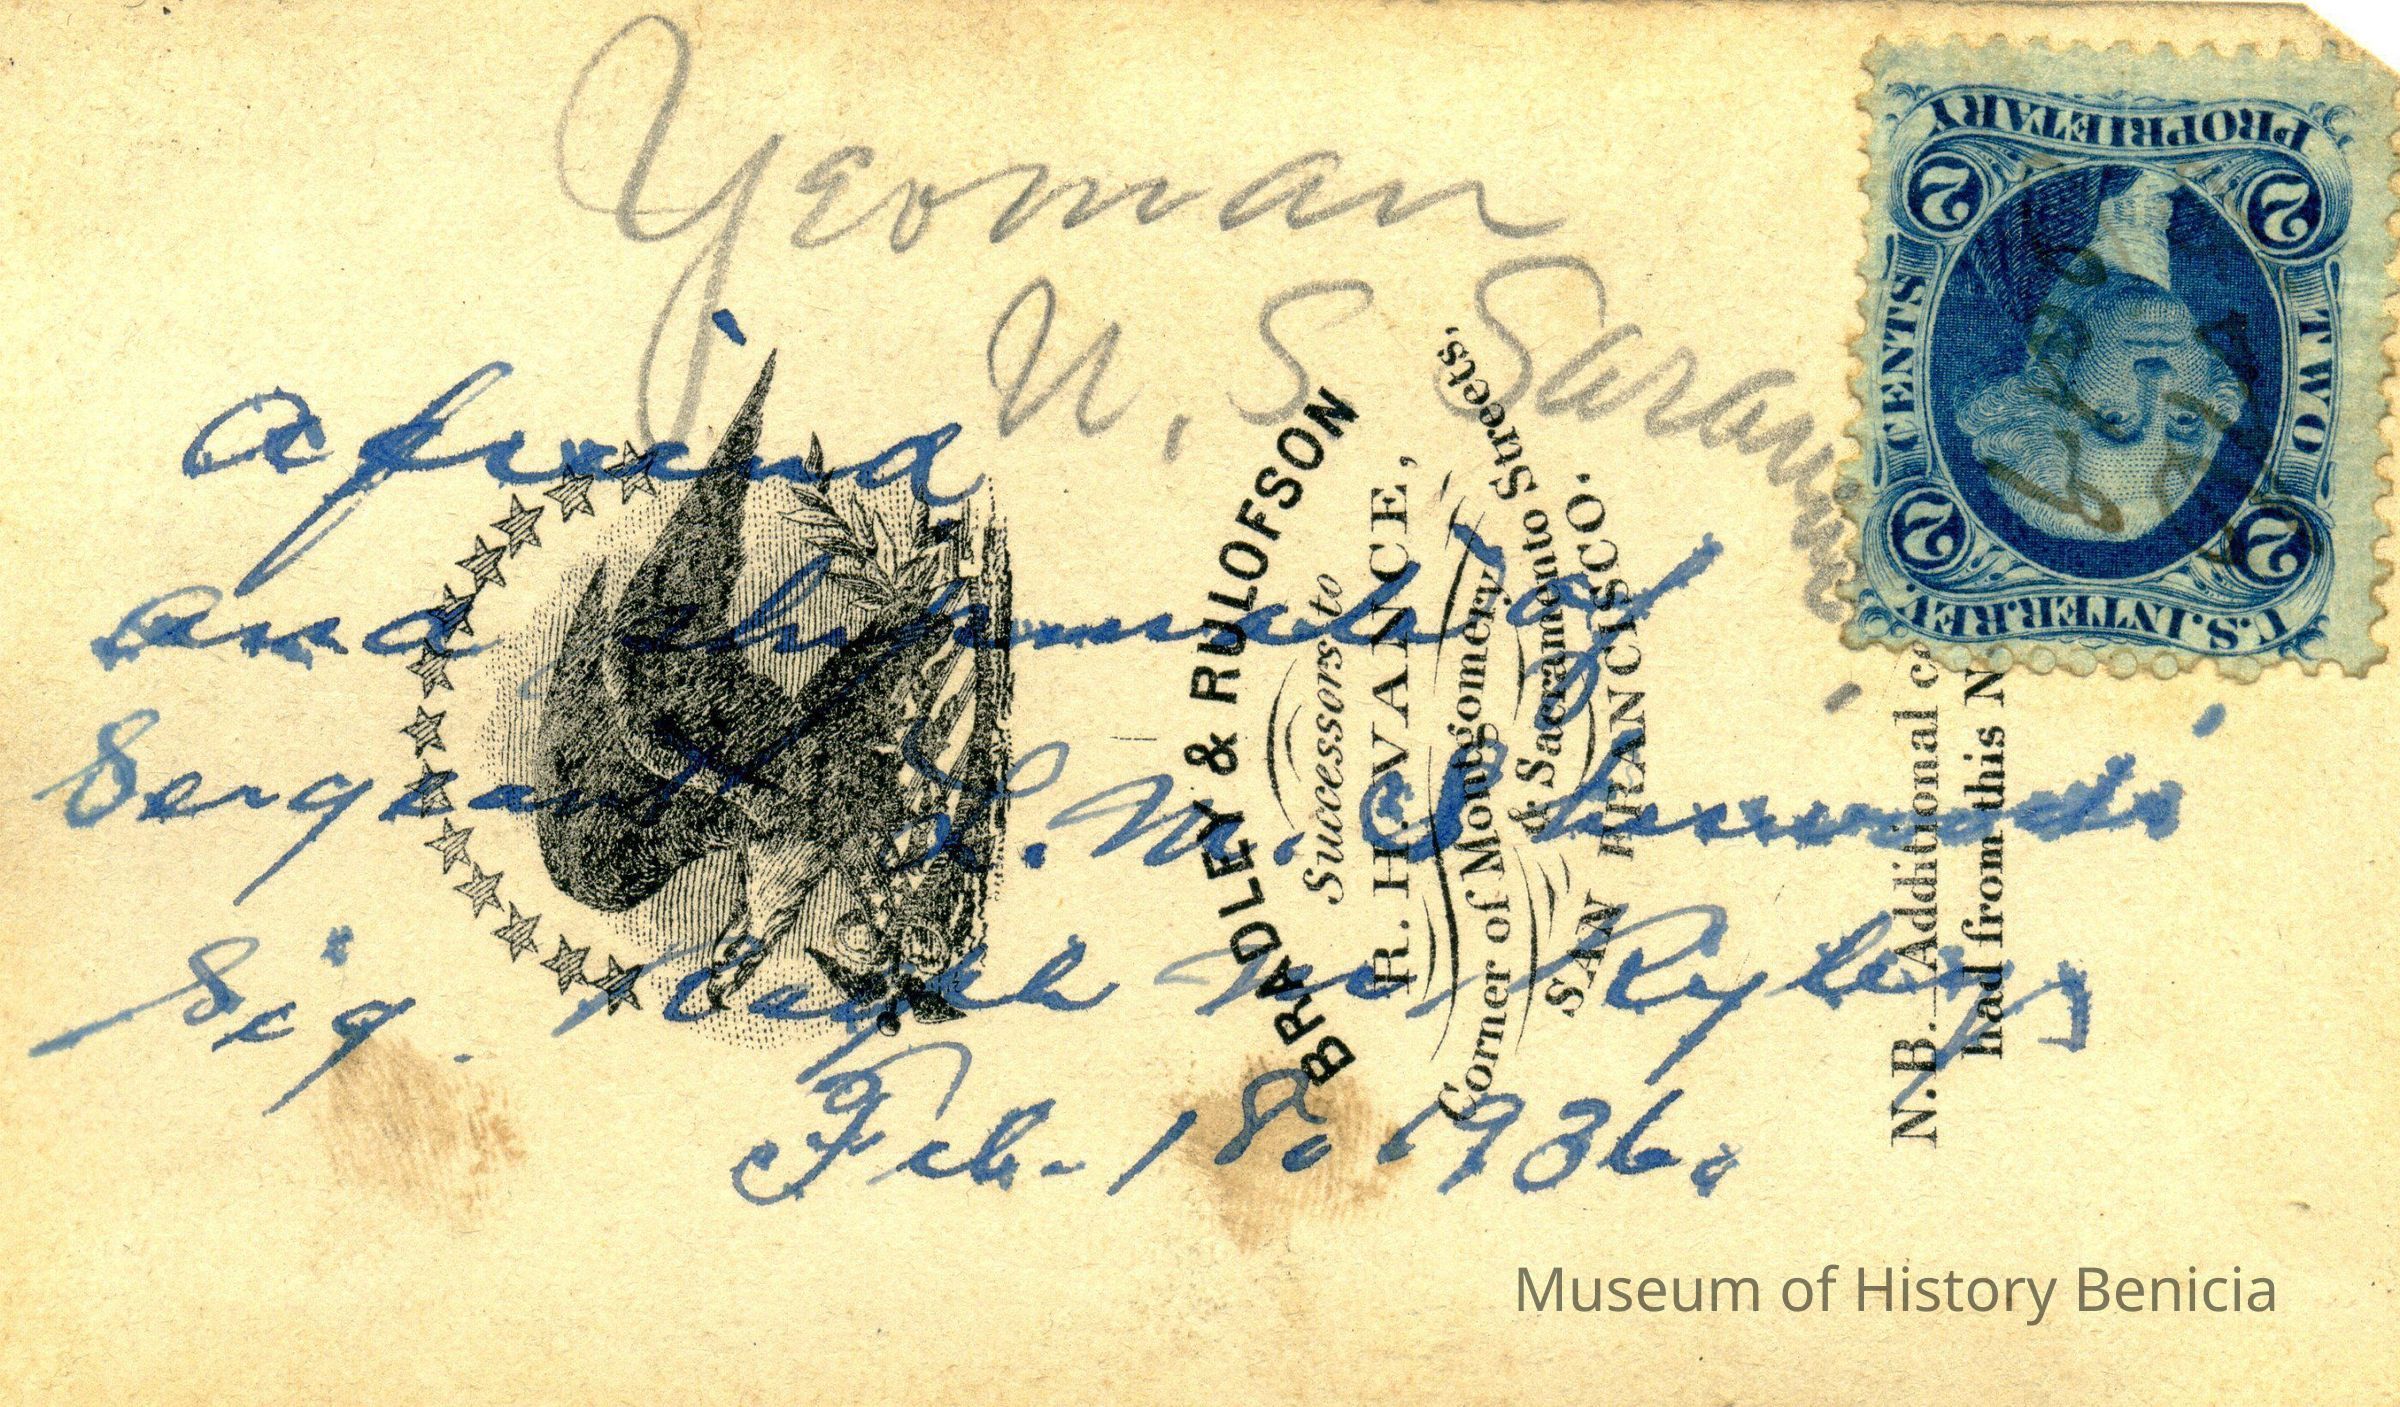 Yeoman
U.S. Saranac
A friend
and shipmate of
Sergeant L.M.
Sig. Hugh McK
Feb. 18. 1936.
BRADLEY & RULOFSON
Successors to
R. H. VANCE,
Corner of Montgomery
& Sacramento Streets,
SAN FRANCISCO.
N.B. Additional c
had from this N
U.S. INTER. REV.
TWO CENTS
PROPRIETARY
2
2
2
2
Museum of History Benicia